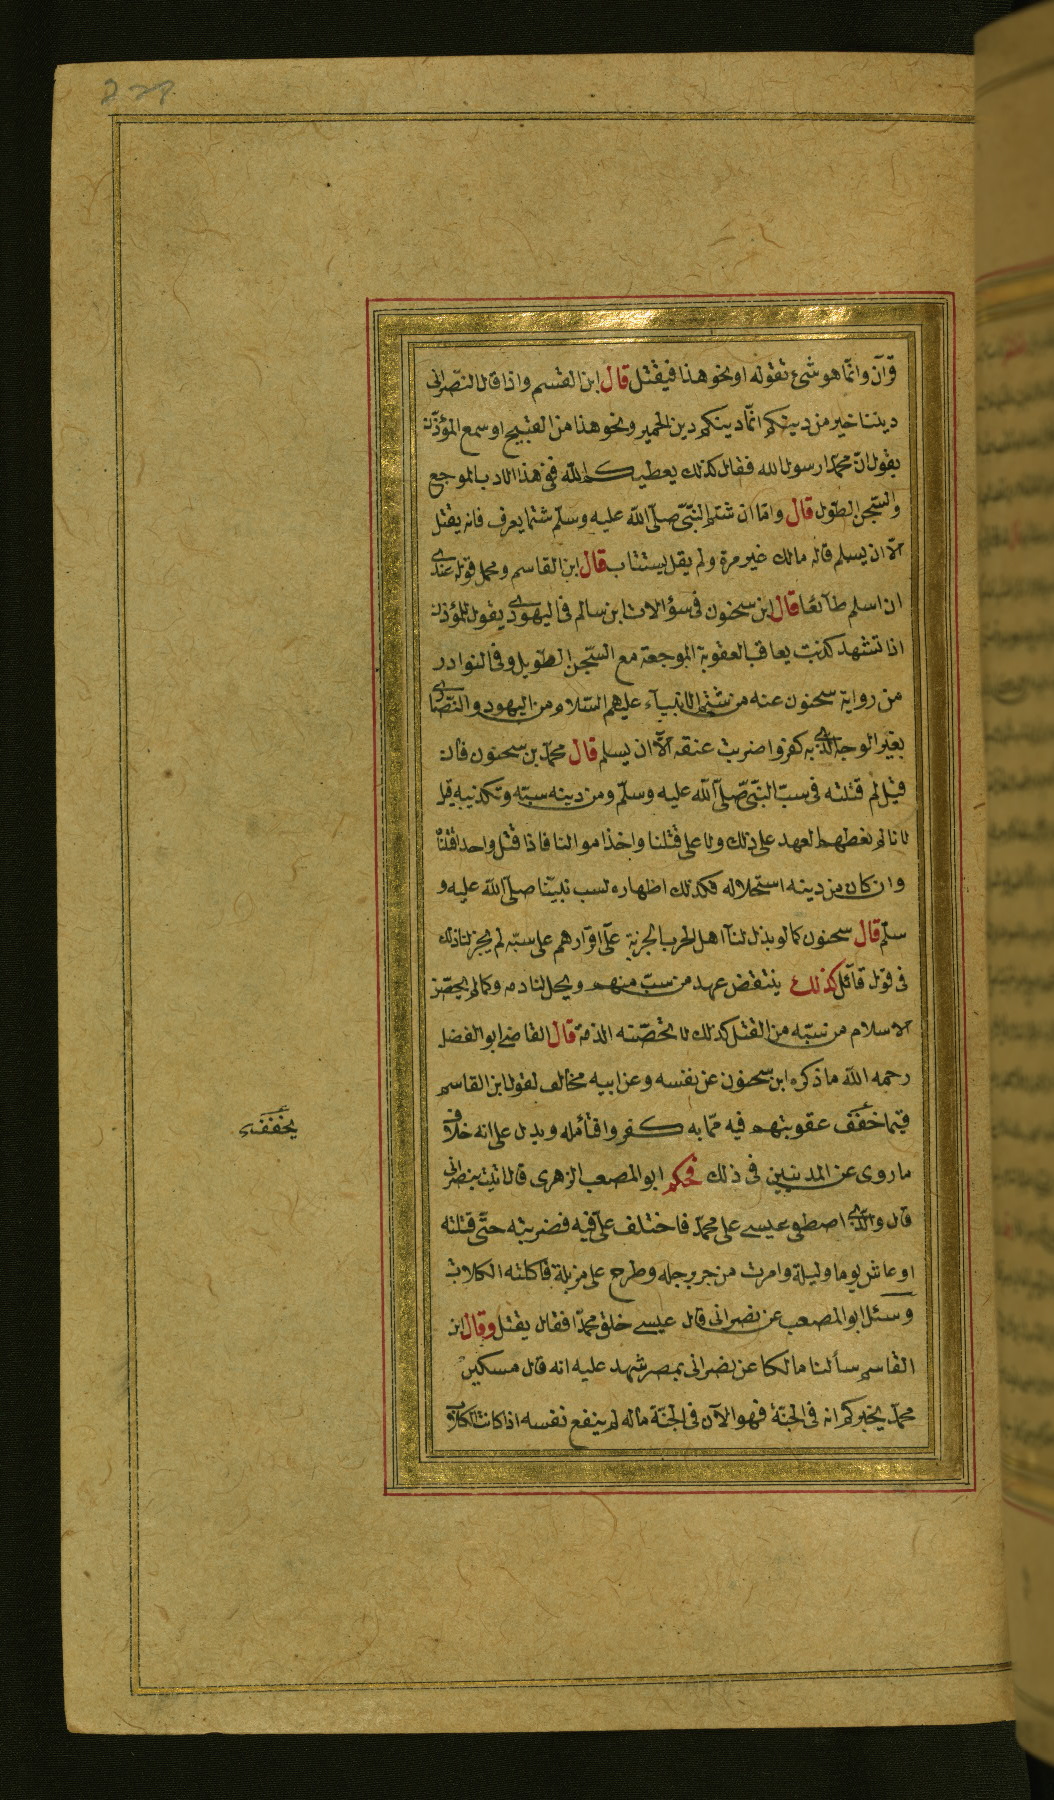 قرآن وانما هو شيء تقوله او نحو هذا فيقتل قال ابن القسم واذا قال النصراني
ديننا خير من دينكم انما دينكم دين الحمير ونحو هذا من القبيح او سمع المؤذن
يقول ان محمدا رسول الله فقال كذلك يعطيكم الله ففي هذا الادب الموجع
والسجن الطول قال واما ان شتم النبي صلى الله عليه وسلم شتما يعرف فانه يقتل
الا ان يسلم قاله مالك غير مرة ولم يقل يستتاب قال ابن القاسم ومحمل قوله عندي
ان اسلم طائعا قال ابن سحنون في سؤالات ابن سالم في اليهودي يقول للمؤذن
اذا تشهد كذبت يعاقب العقوبة الموجعة مع السجن الطويل وفي النوادر
من رواية سحنون عنه من شتم الانبياء عليهم السلام من اليهود والنصارى
بغير الوجه الذي به كفروا ضربت عنقه الا ان يسلم قال محمد بن سحنون فان
قيل لم قتلته في سب النبي صلى الله عليه وسلم ومن دينه سبه وتكذيبه قيل
لانا لم نعطهم العهد على ذلك ولا على قتلنا واخذ اموالنا فاذا قتل واحدا قتلناه
وان كان من دينه استحلاله فكذلك اظهاره لسب نبينا صلى الله عليه و
سلم قال سحنون كما لو بذل لنا اهل الحرب الجزية على اقرارهم على سبه لم يجز لنا ذلك
في قول قائل كذلك ينتقض عهد من سب منهم ويحل لنا دمه وكما لم يحصن
الاسلام من سبه من القتل كذلك لا تحصنه الذمة قال القاضي ابو الفضل
رحمه الله ما ذكره ابن سحنون عن نفسه وعن ابيه مخالف لقول ابن القاسم
فيما خفف عقوبتهم فيه مما به كفروا فتأمله ويدل على انه خلاف
يخفف
ما روى عن المدنيين في ذلك فحكم ابو المصعب الزهري قال اتيت بنصراني
قال والذي اصطفى عيسى على محمد فاختلف علي فيه فضربته حتى قتلته
او عاش يوما وليلة وامرت من جر برجله وطرح على مزبلة فاكلته الكلاب
وسئل ابو المصعب عن نصراني قال عيسى خلق محمدا فقال يقتل وقال ابن
القاسم سألنا مالكا عن نصراني بمصر شهد عليه انه قال مسكين
محمد يخبركم انه في الجنة فهو الآن في الجنة ماله لم ينفع نفسه اذا كانت الكلاب